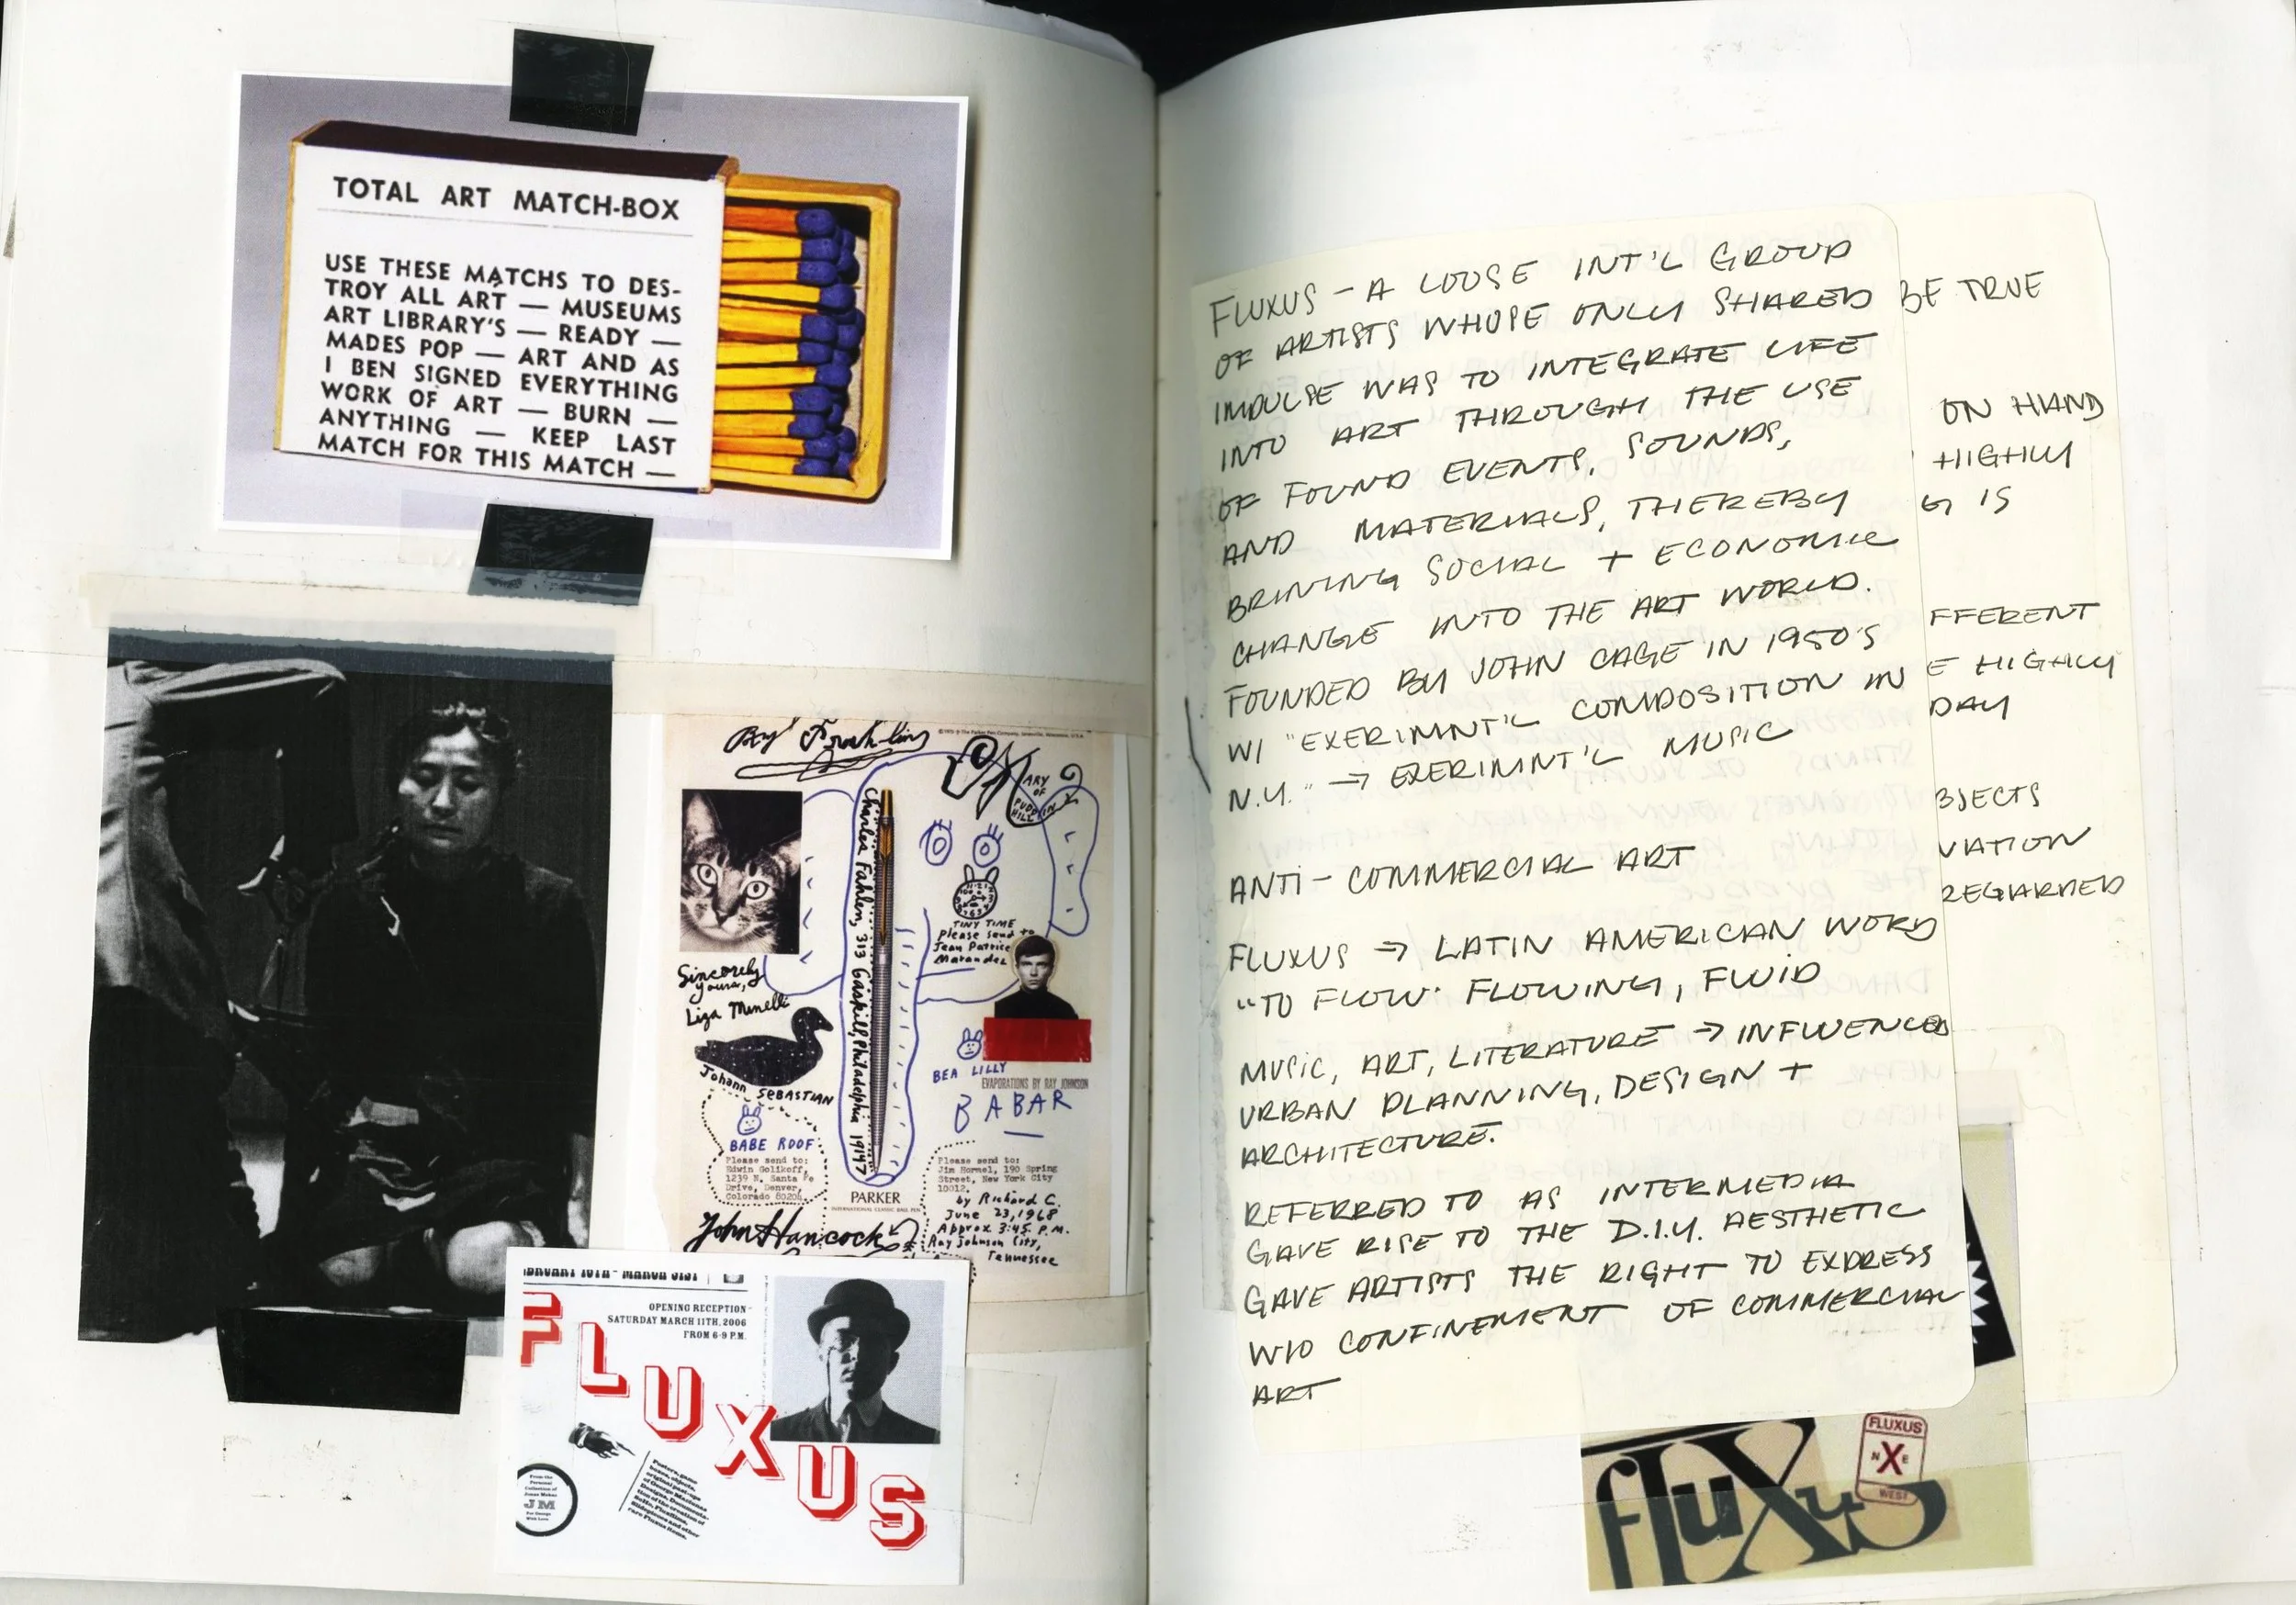 TOTAL ART MATCH-BOX
USE THESE MATCHS TO DES-
TROY ALL ART — MUSEUMS
ART LIBRARY'S — READY —
MADES POP — ART AND AS
I BEN SIGNED EVERYTHING
WORK OF ART — BURN —
ANYTHING — KEEP LAST
MATCH FOR THIS MATCH —
ARY
OF
PUDDIN
HILL
Charles Fahlen, 313 Gaskill, Philadelphia 19147
TINY TIME
Please send to
Jean Patrice
Marandel
Sincerely
yours,
Liza Minelli
Johann SEBASTIAN
BEA LILLY
EVAPORATIONS BY RAY JOHNSON
BABAR
BABE ROOF
Please send to:
Edwin Golikoff,
1239 N. Santa Fe
Drive, Denver,
Colorado 80204
PARKER
INTERNATIONAL CLASSIC BALL PEN
Please send to:
Jim Hormel, 190 Spring
Street, New York City
10012.
by Richard C.
June 23, 1968
Approx 3:45 P.M.
Ray Johnson City,
Tennessee
John Hancock
OPENING RECEPTION
SATURDAY MARCH 11TH, 2006
FROM 6-9 P.M.
FLUXUS
From the
Personal
Collection of
Jonas Mekas
JM
For George
With Love
FLUXUS - A LOOSE INT'L GROUP
OF ARTISTS WHOSE ONLY SHARED
IMPULSE WAS TO INTEGRATE LIFE
INTO ART THROUGH THE USE
OF FOUND EVENTS, SOUNDS,
AND MATERIALS, THEREBY
BRINING SOCIAL + ECONOMIC
CHANGE INTO THE ART WORLD.
FOUNDED BY JOHN CAGE IN 1950'S
W/ "EXERIMNT'L COMPOSITION IN
N.Y." → EXERIMNT'L MUSIC
ANTI-COMMERCIAL ART
FLUXUS → LATIN AMERICAN WORD
"TO FLOW" FLOWING, FLUID
MUSIC, ART, LITERATURE → INFLUENCED
URBAN PLANNING, DESIGN +
ARCHITECTURE.
REFERRED TO AS INTERMEDIA
GAVE RISE TO THE D.I.Y. AESTHETIC
GAVE ARTISTS THE RIGHT TO EXPRESS
W/O CONFINEMENT OF COMMERCIAL
ART
BE TRUE
ON HAND
HIGHLY
G IS
FFERENT
E HIGHLY
DAY
BJECTS
VATION
REGARDED
FLUXUS
NXE
WEST
fluXus